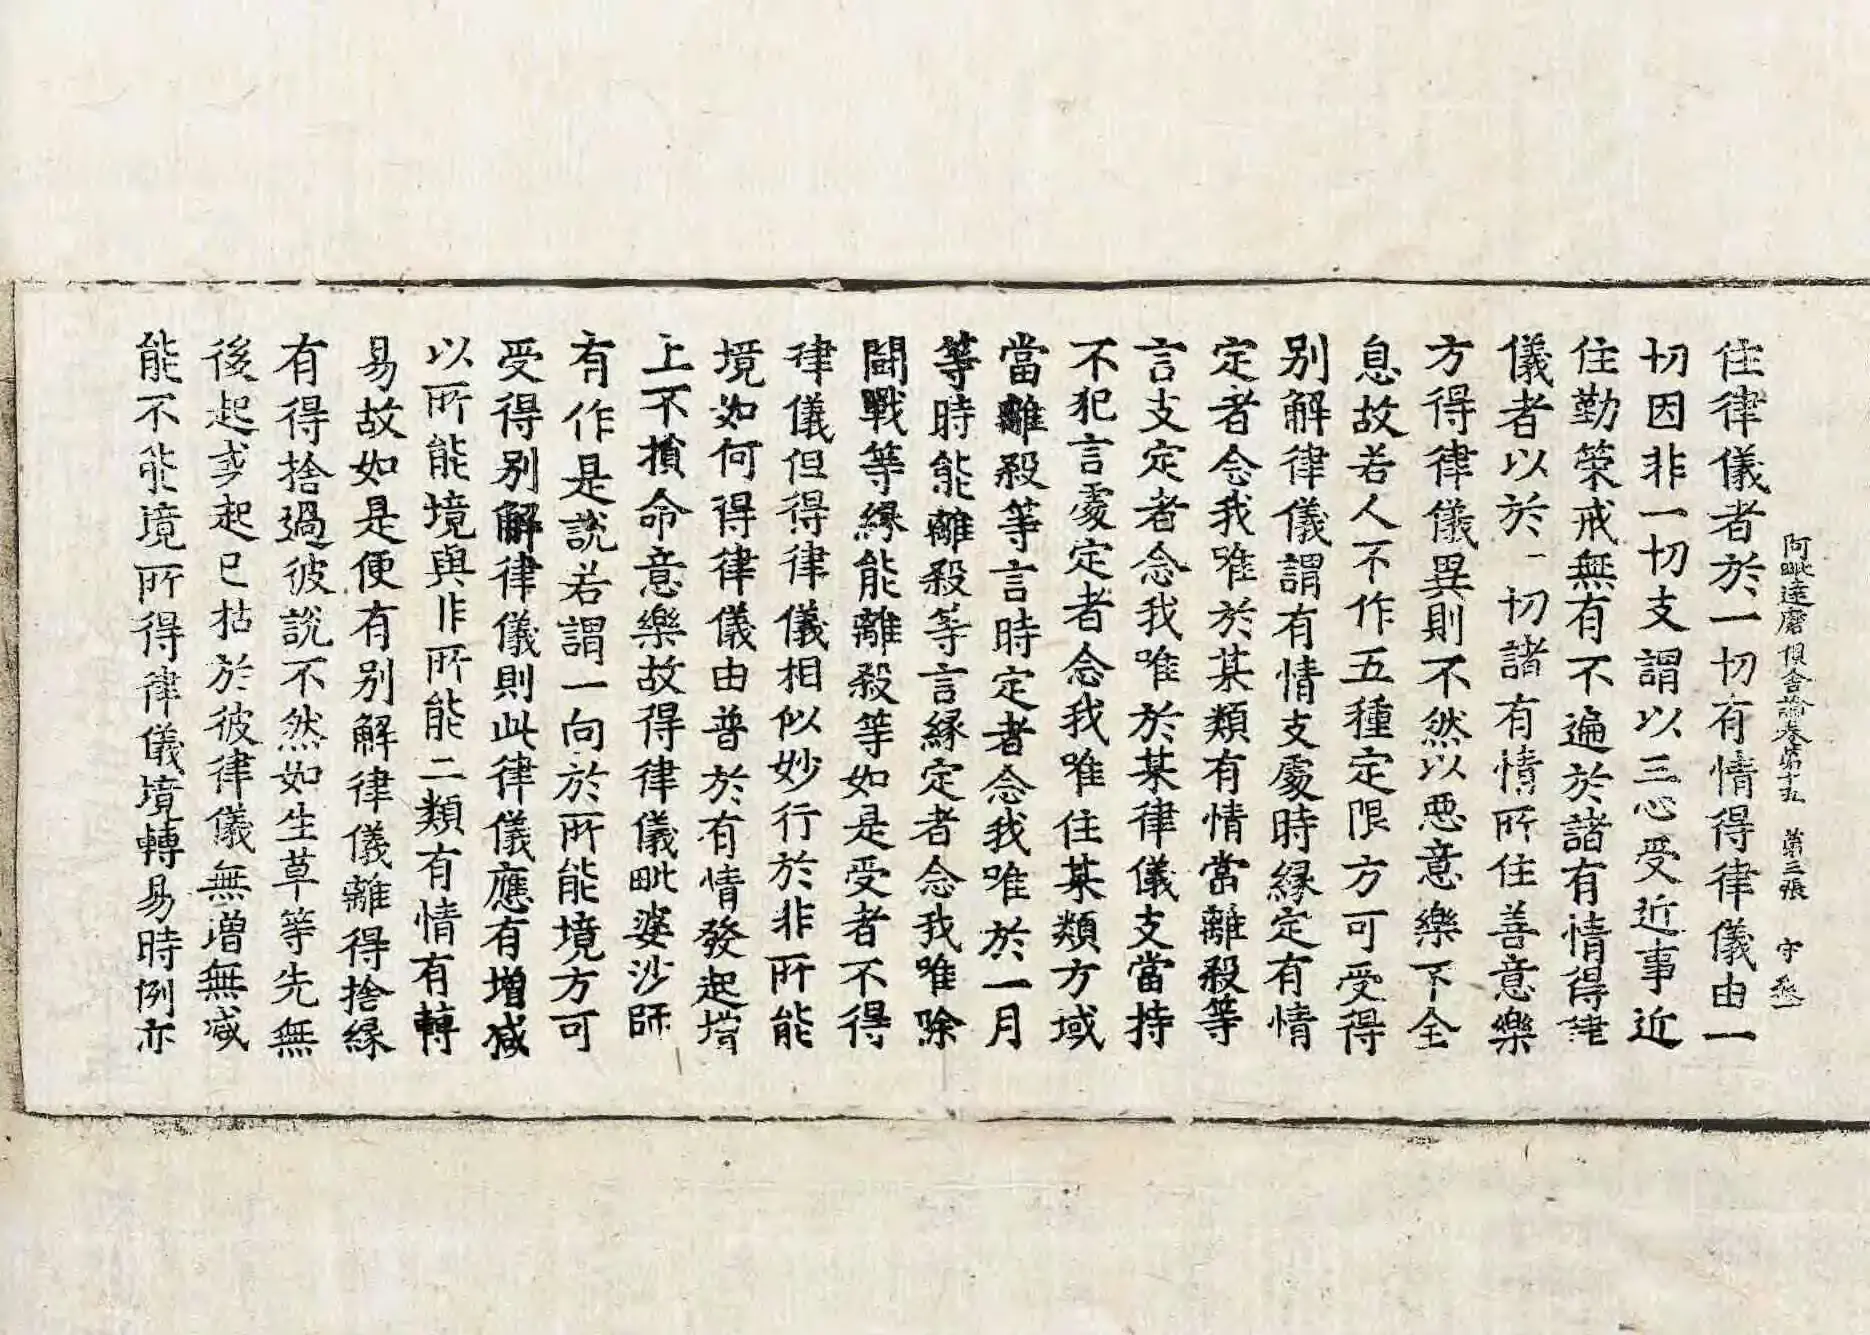 阿毗達磨俱舍論卷第十五　第三張　守愁
住律儀者於一切有情得律儀由一
切因非一切支謂以三心受近事近
住勤策戒無有不遍於諸有情得律
儀者以於一切諸有情所住善意樂
方得律儀異則不然以惡意樂不全
息故若人不作五種定限方可受得
別解律儀謂有情支處時緣定有情
定者念我唯於某類有情當離殺等
言支定者念我唯於某律儀支當持
不犯言處定者念我唯住某類方域
當離殺等言時定者念我唯於一月
等時能離殺等言緣定者念我唯除
鬪戰等緣能離殺等如是受者不得
律儀但得律儀相似妙行於非所能
境如何得律儀由普於有情發起增
上不損命意樂故得律儀毗婆沙師
有作是說若謂一向於所能境方可
受得別解律儀則此律儀應有增減
以所能境與非所能二類有情有轉
易故如是便有別解律儀離得捨緣
有得捨過彼說不然如生草等先無
後起或起已枯於彼律儀無增無減
能不能境所得律儀境轉易時例亦